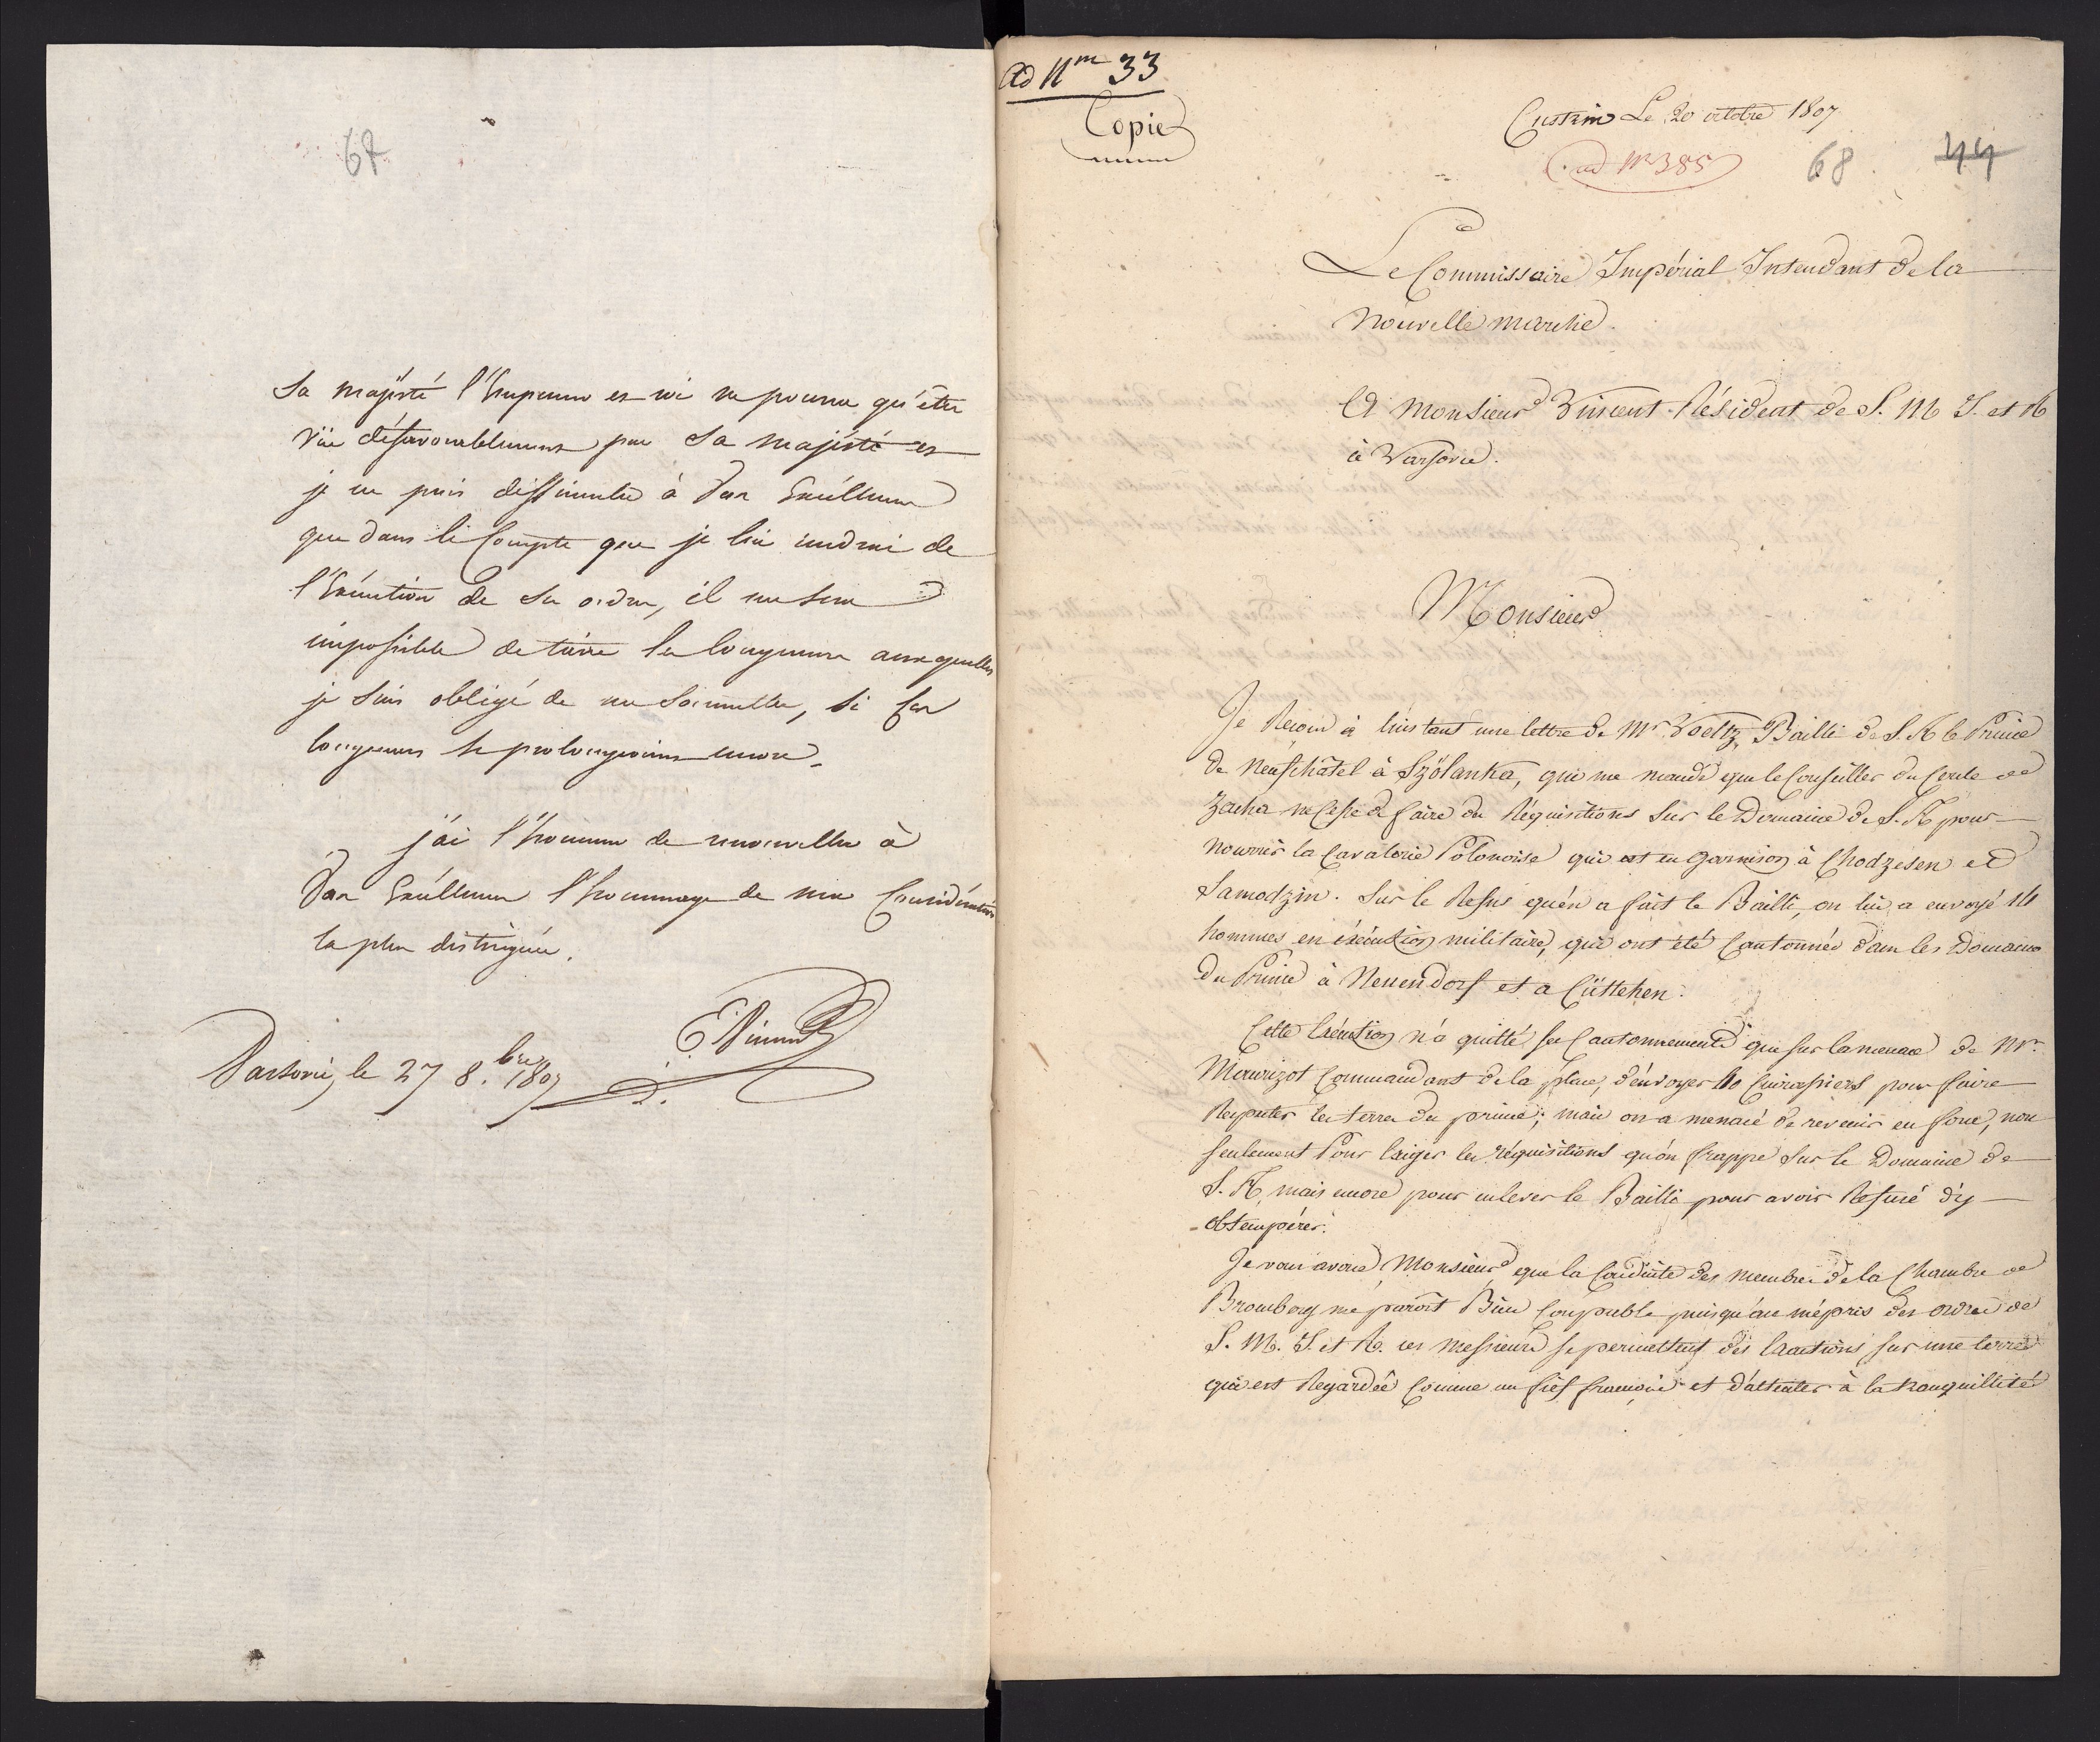 67
Sa majesté l'Empereur et roi ne pourra qu'être
vüe défavorablement par Sa majesté et
je ne puis dissimuler à Son Excellence
que dans le Compte que je lui rendrai de
l'Exécution de ses ordres, il me sera
impossible de taire les longueurs auxquelles
je suis obligé de me soumettre, si ces
longueurs se prolongeaient encore.
j'ai l'honneur de renouveller à
Son Excellence l'hommage de ma Considération
la plus distinguée.
EVincent
Varsovie, le 27 8.bre 1807
Ad Nm 33
Copie
Custrin Le 20 octobre 1807
ad Nr 385
68 44
Le Commissaire Impérial Intendant de la
Nouvelle marche.
A Monsieur Vincent Résident de S. M. I. et R
à Varsovie.
Monsieur
Je Reçois à l'instant une lettre de Mr Voeltz, Bailli de S. A le Prince
de Neufchâtel à Szölanka, qui me mande que le Conseiller du Cercle de
Zacha ne Cesse de faire des Réquisitions sur le Domaine de S. A pour
nourrir la Cavalerie Polonoise qui est en garnison à Chodzesen et
Samodzin. Sur le Refus qu'en a fait le Bailli, on lui a envoyé 14
hommes en éxécution militaire, qui ont été Cantonnés dans les Domaines
du Prince à Neuendorf et a Cüttehen.
Cette Exécution n'a quitté ses Cantonnements que sur la menace de Mr.
Maurizot Commandant de la place, d'envoyer 40 Cuirassiers pour faire
Respecter les terres du prince; mais on a menacé de revenir en force, non
seulement Pour Exiger les réquisitions qu'on frappe sur le Domaine de
S. A, mais encore pour enlever le Bailli pour avoir Refusé d'y
obtempérer.
Je vous avoue Monsieur que la Conduite des membres de la Chambre de
Bromberg me paroît Bien Coupable puisqu'au mépris des ordres de
S. M. I. et R. ces Messieurs se permettent des Exactions sur une terre
qui est Regardée Comme un fief françois et d'attenter à la tranquillité